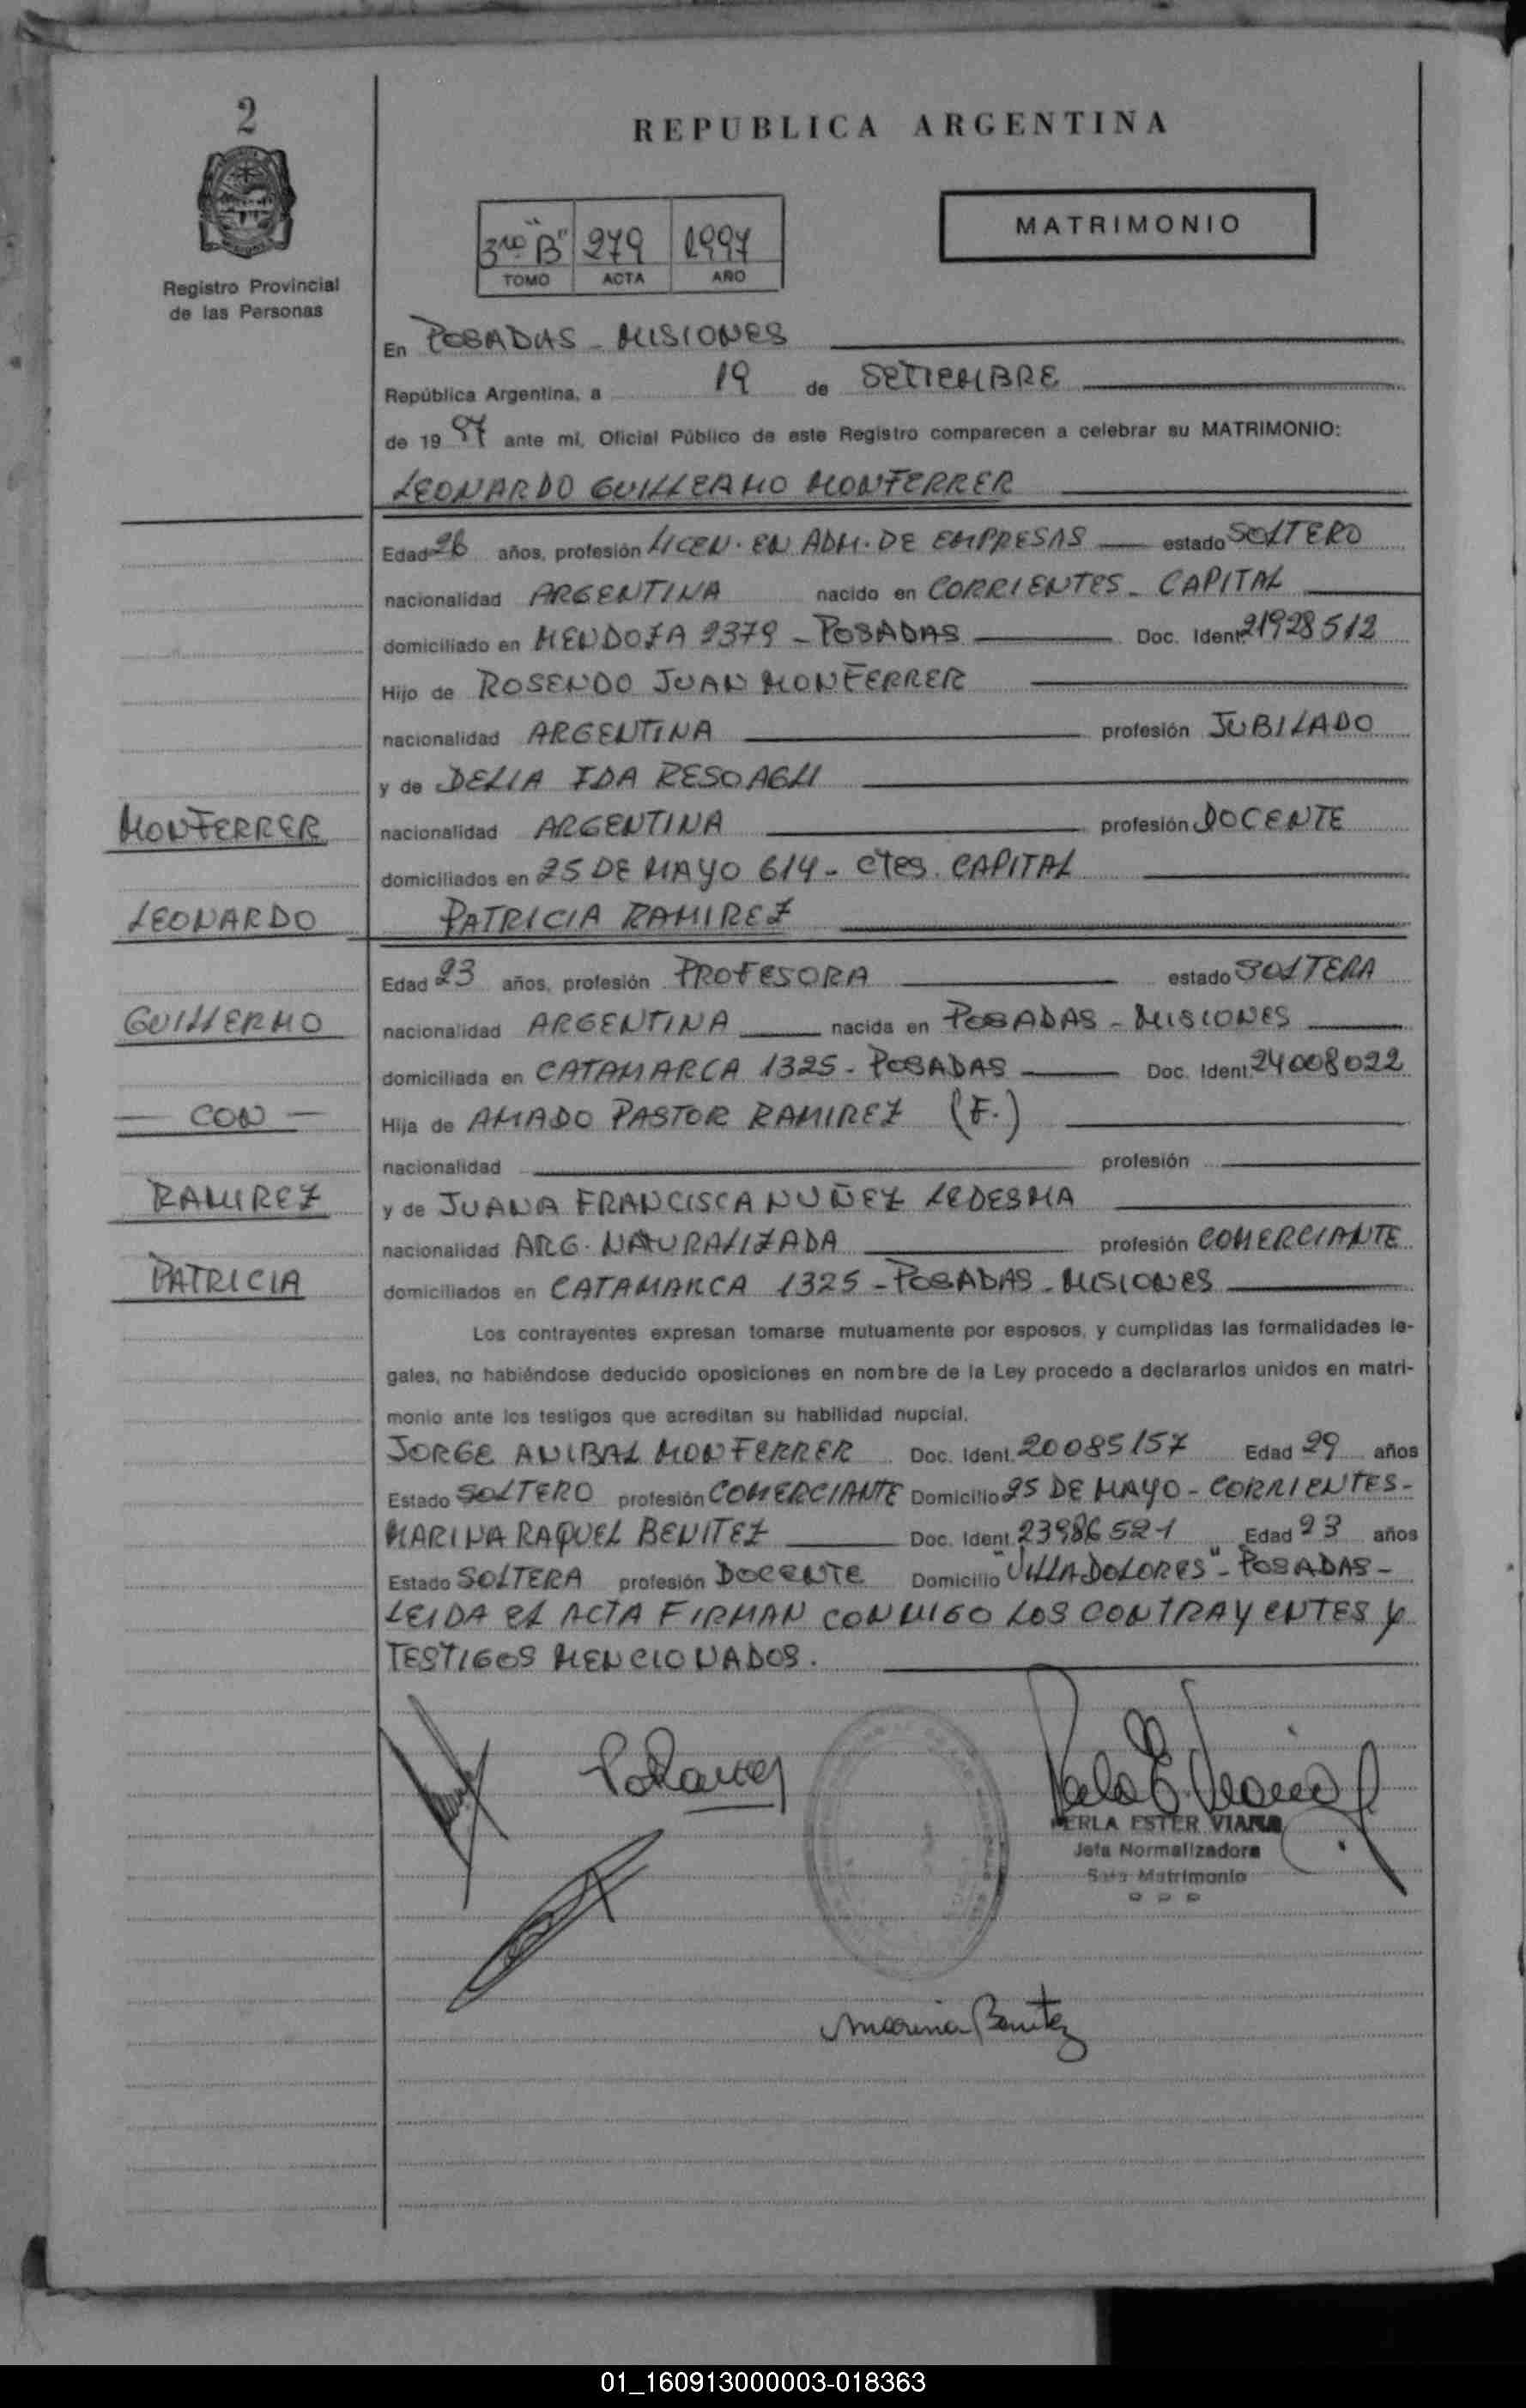 2
REPUBLICA ARGENTINA
3ro "B" 279 1997
TOMO ACTA AÑO
MATRIMONIO
Registro Provincial
de las Personas
En POSADAS - MISIONES
República Argentina, a 19 de SETIEMBRE
de 19 97 ante mi, Oficial Público de este Registro comparecen a celebrar su MATRIMONIO:
LEONARDO GUILLERMO MONFERRER
Edad 26 años, profesión LICEN. EN ADM. DE EMPRESAS estado SOLTERO
nacionalidad ARGENTINA nacido en CORRIENTES - CAPITAL
domiciliado en MENDOZA 2379 - POSADAS Doc. Ident. 21928512
Hijo de ROSENDO JUAN MONFERRER
nacionalidad ARGENTINA profesión JUBILADO
y de DELIA IDA RESOAGLI
MONFERRER
nacionalidad ARGENTINA profesión DOCENTE
domiciliados en 25 DE MAYO 614 - CTES. CAPITAL
LEONARDO
PATRICIA RAMIREZ
Edad 23 años, profesión PROFESORA estado SOLTERA
GUILLERMO
nacionalidad ARGENTINA nacida en POSADAS - MISIONES
domiciliada en CATAMARCA 1325 - POSADAS Doc. Ident. 24008022
— CON —
Hija de AMADO PASTOR RAMIREZ (F.)
nacionalidad profesión
RAMIREZ
y de JUANA FRANCISCA NUÑEZ LEDESMA
nacionalidad ARG. NATURALIZADA profesión COMERCIANTE
PATRICIA
domiciliados en CATAMARCA 1325 - POSADAS - MISIONES
Los contrayentes expresan tomarse mutuamente por esposos, y cumplidas las formalidades le-
gales, no habiéndose deducido oposiciones en nombre de la Ley procedo a declararlos unidos en matri-
monio ante los testigos que acreditan su habilidad nupcial.
JORGE ANIBAL MONFERRER Doc. Ident. 20085157 Edad 29 años
Estado SOLTERO profesión COMERCIANTE Domicilio 25 DE MAYO - CORRIENTES -
MARINA RAQUEL BENITEZ Doc. Ident. 23986521 Edad 23 años
Estado SOLTERA profesión DOCENTE Domicilio "VILLA DOLORES" - POSADAS -
LEIDA EL ACTA FIRMAN CONMIGO LOS CONTRAYENTES Y
TESTIGOS MENCIONADOS.
PERLA ESTER VIANA
Jefa Normalizadora
Sala Matrimonio
Marina Benitez
01_160913000003-018363